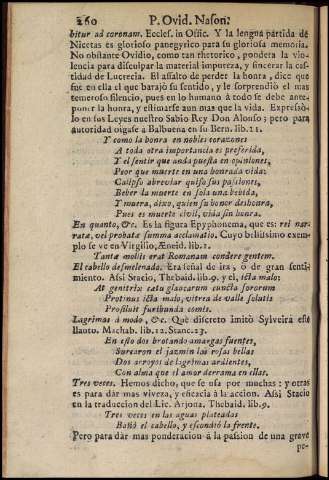 260 P. Ovid. Nason.
bitur ad coronam. Eccles. in Offic. Y la lengua partida de
Nicetas es glorioso panegyrico para su gloriosa memoria.
No obstante Ovidio, como tan rhetorico, pondera la vio-
lencia para disculpar la material impureza, y sincerar la cas-
tidad de Lucrecia. El assalto de perder la honra, dice que
fue en ella el que barajò su sentido, y le sorprendiò el mas
temeroso silencio, pues en lo humano à todo se debe ante-
poner la honra, y estimarse aun mas que la vida. Expressò-
lo en sus Leyes nuestro Sabio Rey Don Alonso; pero para
autoridad oigase a Balbuena en su Bern. lib. 21.
Y como la honra en nobles corazones
A toda otra importancia es preferida,
Y el sentir que anda puesta en opiniones,
Peor que muerte en una honrada vida:
Calipso abreviar quiso sus passiones,
Beber la muerte en sola una bebida,
Y muera, dixo, quien su honor deshonra,
Pues es muerte civil, vida sin honra.
En quanto, &c. Es la figura Epyphonema, que es: rei nar-
ratæ, vel probatæ summa acclamatio. Cuyo bellissimo exem-
plo se ve en Virgilio, Æneid. lib. 1.
Tantæ molis erat Romanam condere gentem.
El cabello desmelenado. Era señal de ira, ò de gran senti-
miento. Assi Stacio, Thebaid. lib. 9. y el, icta malo:
At genitrix cœtu glaucarum cuncta sororum
Protinus icta malo, vitrea de valle solutis
Prosiluit furibunda comis.
Lagrimas à modo, &c. Què discreto imitò Sylveira este
llanto. Machab. lib. 12. Stanc. 23.
En esto dos brotando amargas fuentes,
Surcaron el jazmin las rosas bellas
Dos arroyos de lagrimas ardientes,
Con alma que el amor derrama en ellas.
Tres veces. Hemos dicho, que se usa por muchas: y otras
es para dàr mas viveza, y eficacia à la accion. Assi Stacio
en la traduccion del Lic. Arjona. Thebaid. lib. 9.
Tres veces en las aguas plateadas
Bañò el cabello, y escondiò la frente.
Pero para dàr mas ponderacion à la passion de una grave
pe-